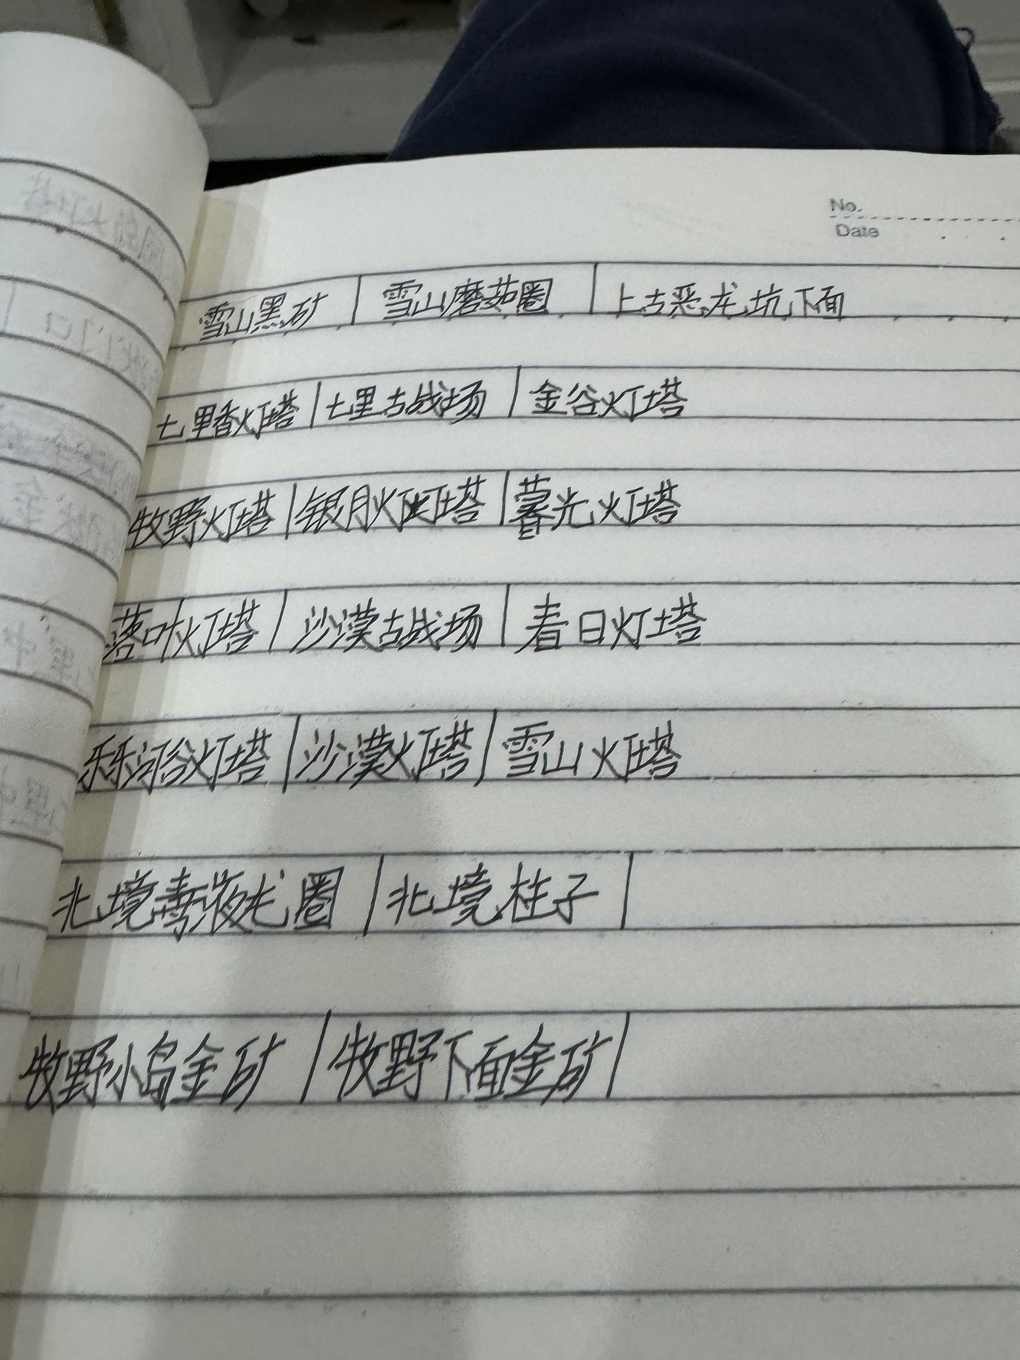 No.
Date
雪山黑矿 | 雪山磨菇圈 | 上古恶龙坑下面
七里香灯塔 | 七里古战场 | 金谷灯塔
牧野灯塔 | 银月灯塔 | 暮光灯塔
落叶灯塔 | 沙漠古战场 | 春日灯塔
乐乐河谷灯塔 | 沙漠灯塔 | 雪山灯塔
北境毒液龙圈 | 北境柱子 |
牧野小岛金矿 | 牧野下面金矿 |